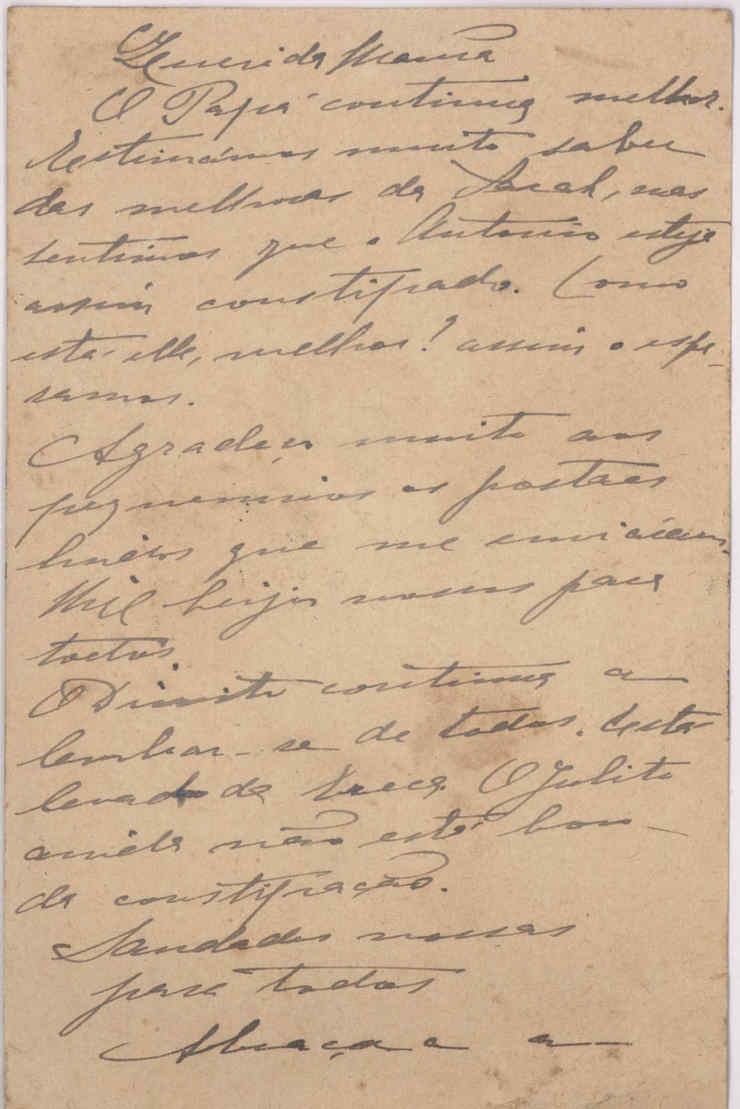 Querida Mamã
O Papá continua melhor.
Estimámos muito saber
das melhoras da Sarah, mas
sentimos que o Antonio esteja
assim constipado. Como
está elle, melhor? assim o espe-
ramos.
Agradeço muito aos
pequeninos os postaes
lindos que me enviáram.
Mil beijos nossos para
todos.
O Dinisito continua a
lembrar-se de todos. Está
levado da breca. O Julito
ainda não está bom
da constipação.
Saudades nossas
para todos
Abraça a a